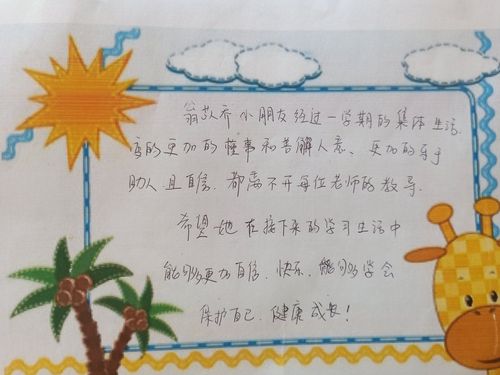 翁苡乔小朋友经过一学期的集体生活.
变的更加的懂事和善解人意、更加的乐于
助人且自信.都离不开每位老师的教导.
希望她在接下来的学习生活中
能够更加自信、快乐、能够学会
保护自己.健康成长!